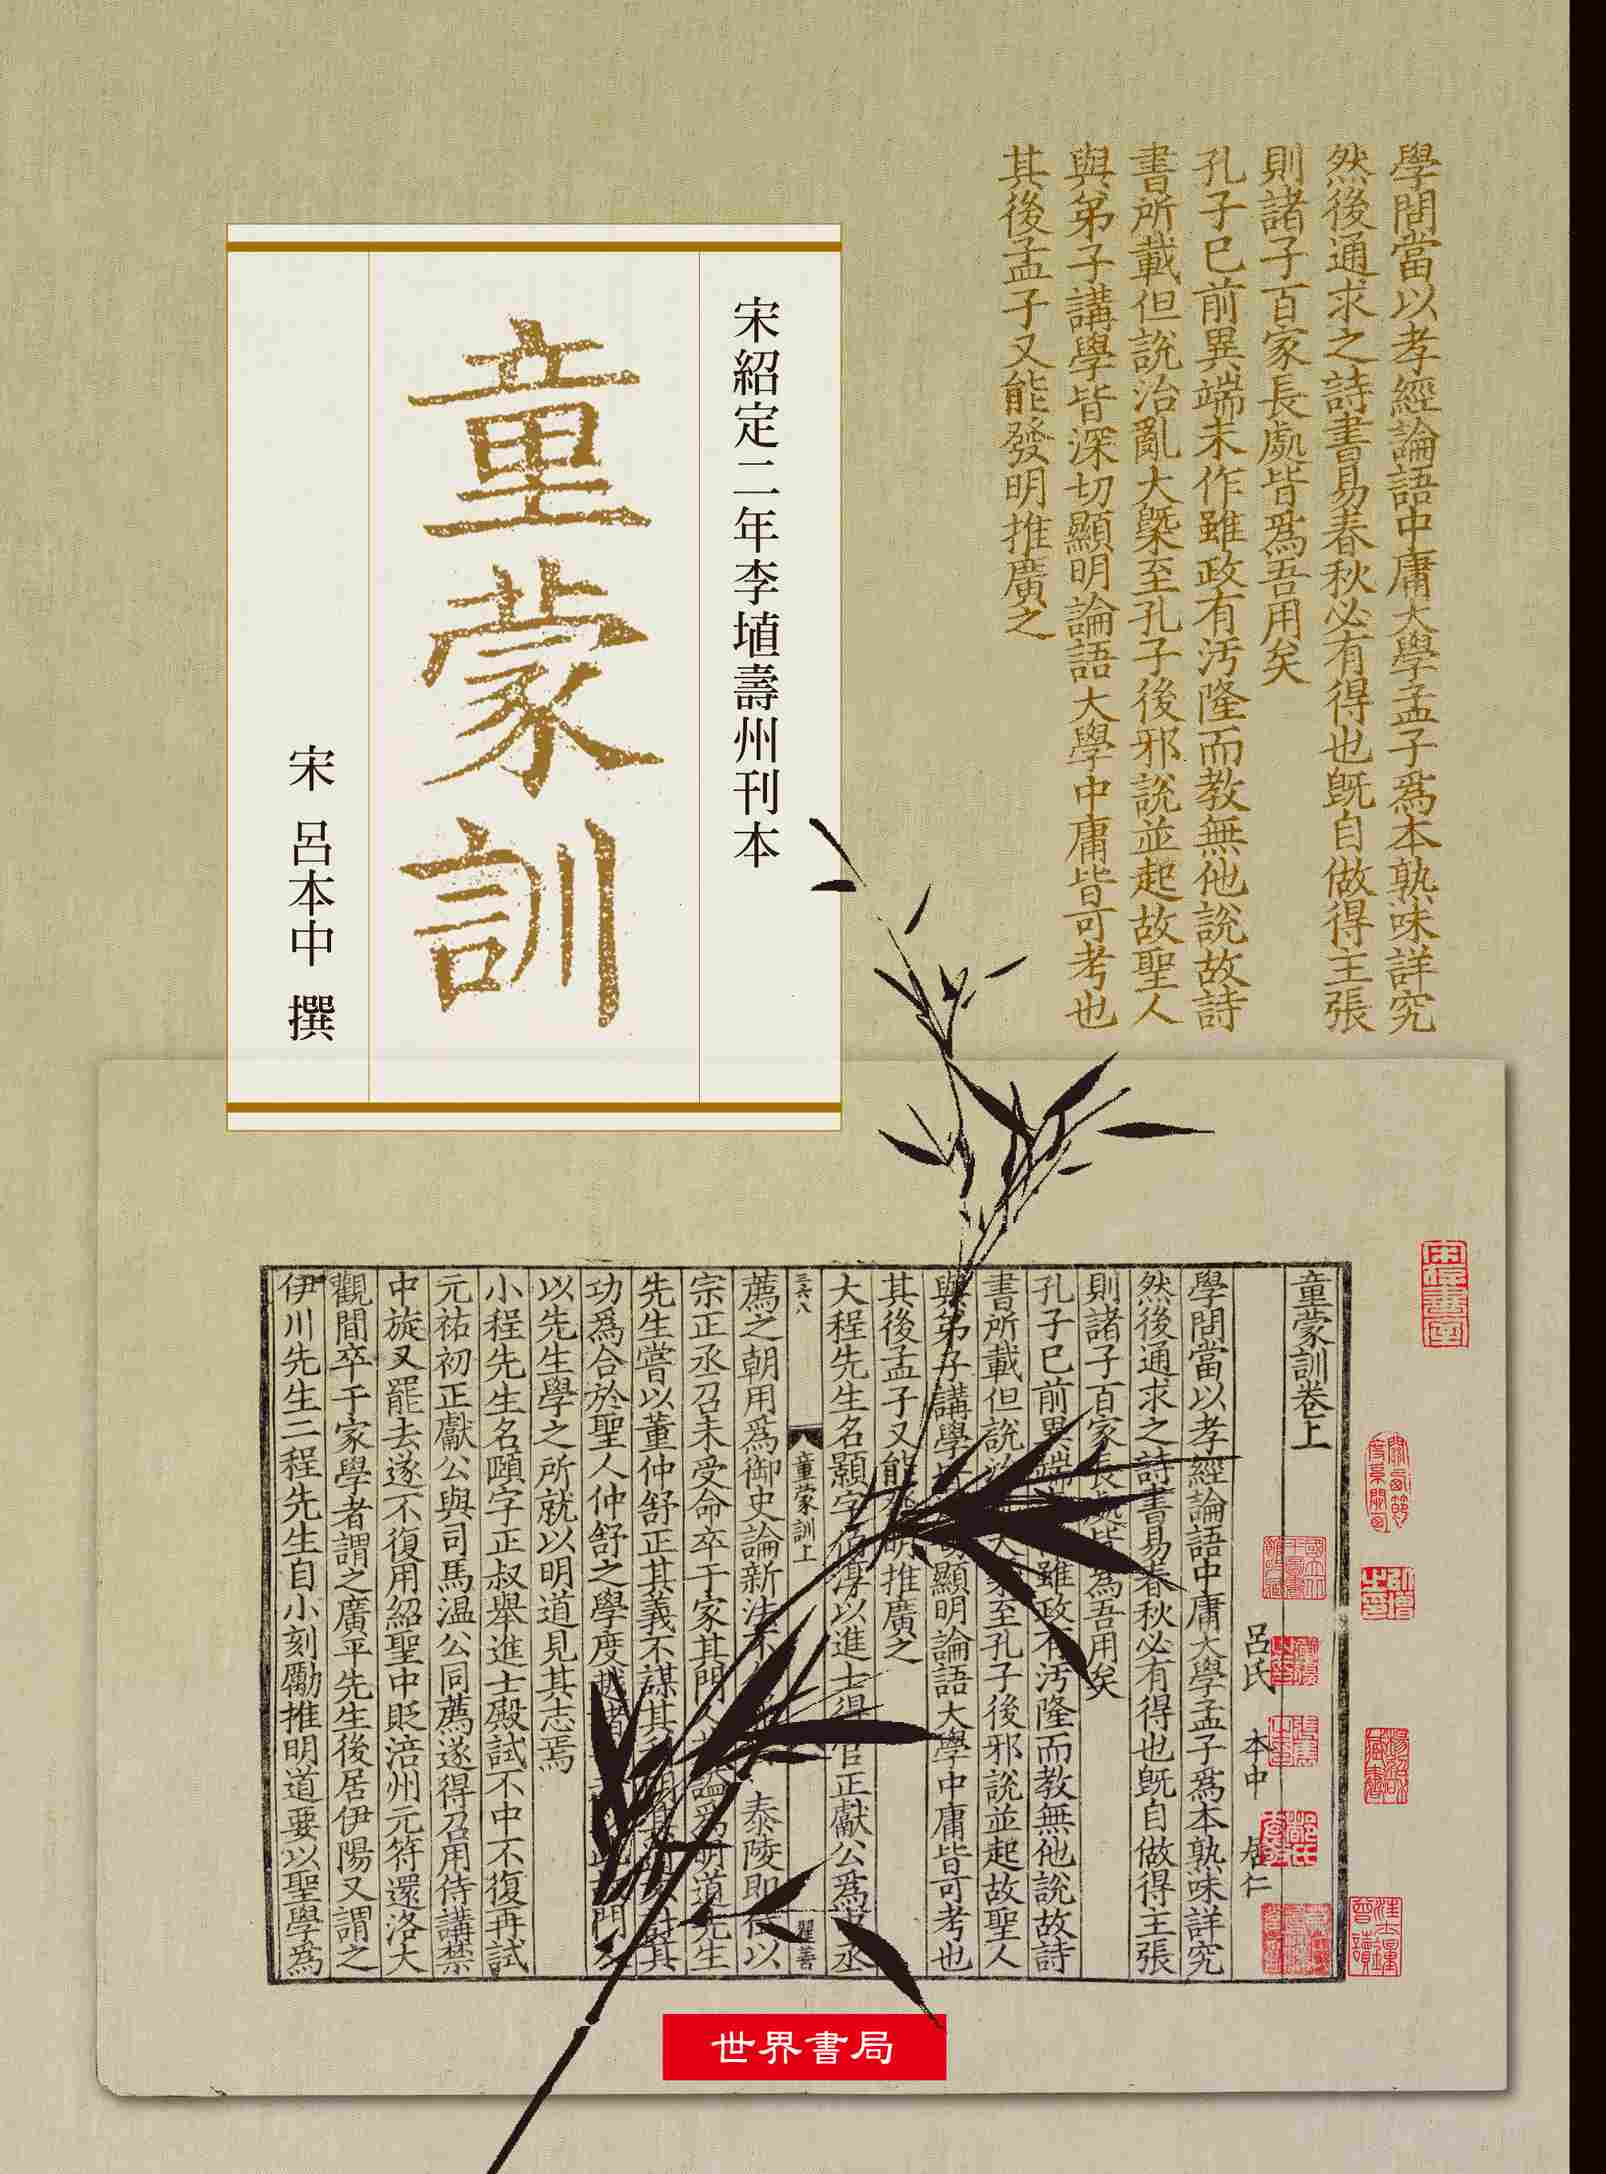 學問當以孝經論語中庸大學孟子爲本熟味詳究
然後通求之詩書易春秋必有得也旣自做得主張
則諸子百家長處皆爲吾用矣
孔子已前異端未作雖政有汚隆而教無他說故詩
書所載但說治亂大槩至孔子後邪說並起故聖人
與弟子講學皆深切顯明論語大學中庸皆可考也
其後孟子又能發明推廣之
宋紹定二年李埴壽州刊本
童蒙訓
宋 呂本中 撰
童蒙訓卷上
呂氏 本中 居仁
學問當以孝經論語中庸大學孟子爲本熟味詳究
然後通求之詩書易春秋必有得也旣自做得主張
則諸子百家長處皆爲吾用矣
孔子已前異端 雖政有汚隆而教無他說故詩
書所載但說 大槩至孔子後邪說並起故聖人
與弟子講學 明顯明論語大學中庸皆可考也
其後孟子又能發明推廣之
大程先生名顥字伯淳以進士得官正獻公爲中丞
三六八
童蒙訓上
翟善
薦之朝用爲御史論新法不 泰陵即位以
宗正丞召未受命卒于家其門人 論爲明道先生
先生嘗以董仲舒正其義不謀其利 其
功爲合於聖人仲舒之學度越諸 門
以先生學之所就以明道見其志焉
小程先生名頤字正叔舉進士殿試不中不復再試
元祐初正獻公與司馬溫公同薦遂得召用侍講禁
中旋又罷去遂不復用紹聖中貶涪州元符還洛大
觀間卒于家學者謂之廣平先生後居伊陽又謂之
伊川先生二程先生自小刻勵推明道要以聖學爲
世界書局